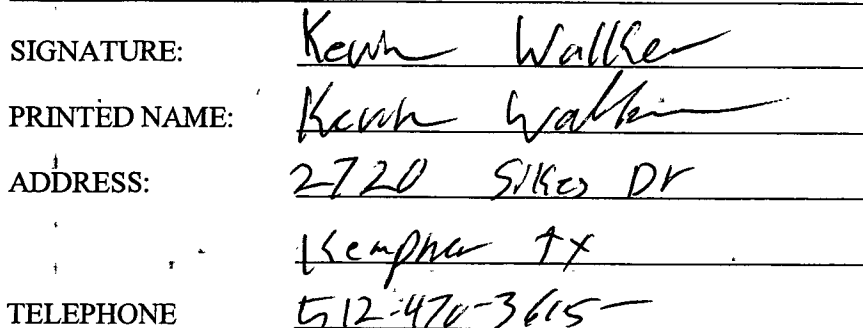 SIGNATURE: Kevin Walker
PRINTED NAME: Kevin Walker
ADDRESS: 2720 Sikes Dr
Kempner TX
TELEPHONE 512-470-3615